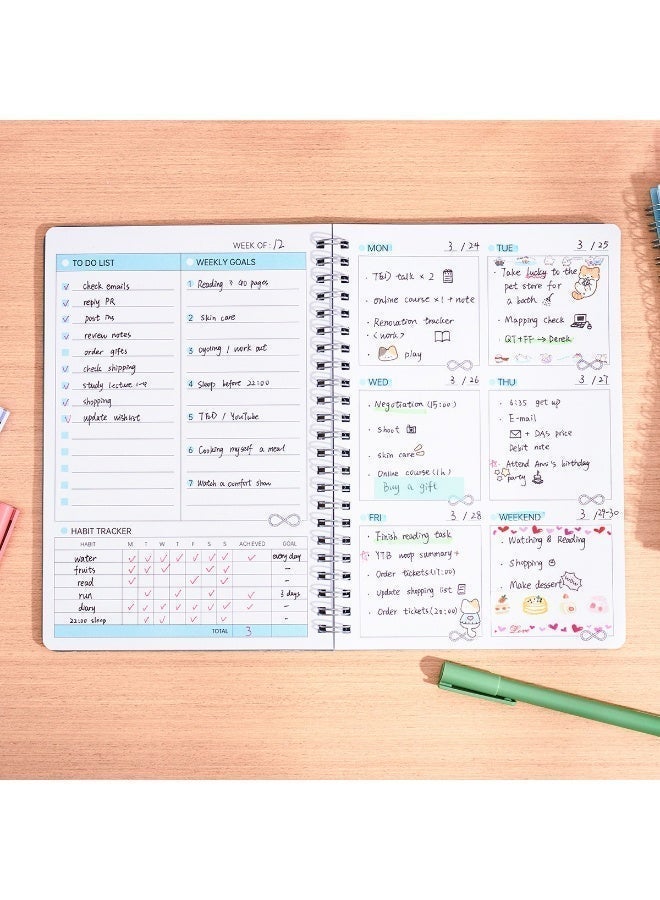 WEEK OF: 12
TO DO LIST
check emails
reply PR
post ins
review notes
order gifts
check shipping
study lecture 1-4
shopping
update wishlist
WEEKLY GOALS
1 Reading ≥ 40 pages
2 Skin care
3 cycling / work out
4 Sleep before 22:00
5 T&D / YouTube
6 Cooking myself a meal
7 Watch a comfort show
HABIT TRACKER
HABIT M T W T F S S ACHIEVED GOAL
water every day
fruits -
read -
run 3 days
diary -
22:00 sleep -
TOTAL 3
MON 3 / 24
· T&D talk × 2
· online course ×1 + note
· Renovation tracker
<work>
· play
TUE 3 / 25
· Take lucky to the
pet store for
a bath
· Mapping check
· QT+FF → Derek
WED 3 / 26
· Negotiation (15:00)
· shoot
· skin care
· Online course (1h)
Buy a gift
THU 3 / 27
· 6:35 get up
· E-mail
+ DAS price
Debit note
· Attend Ann's birthday
party
FRI 3 / 28
· Finish reading task
· YTB woop summary +
· Order tickets (17:00)
· Update shopping list
· Order tickets (20:00)
WEEKEND 3 / 29-30
· Watching & Reading
· Shopping
· Make dessert
Love